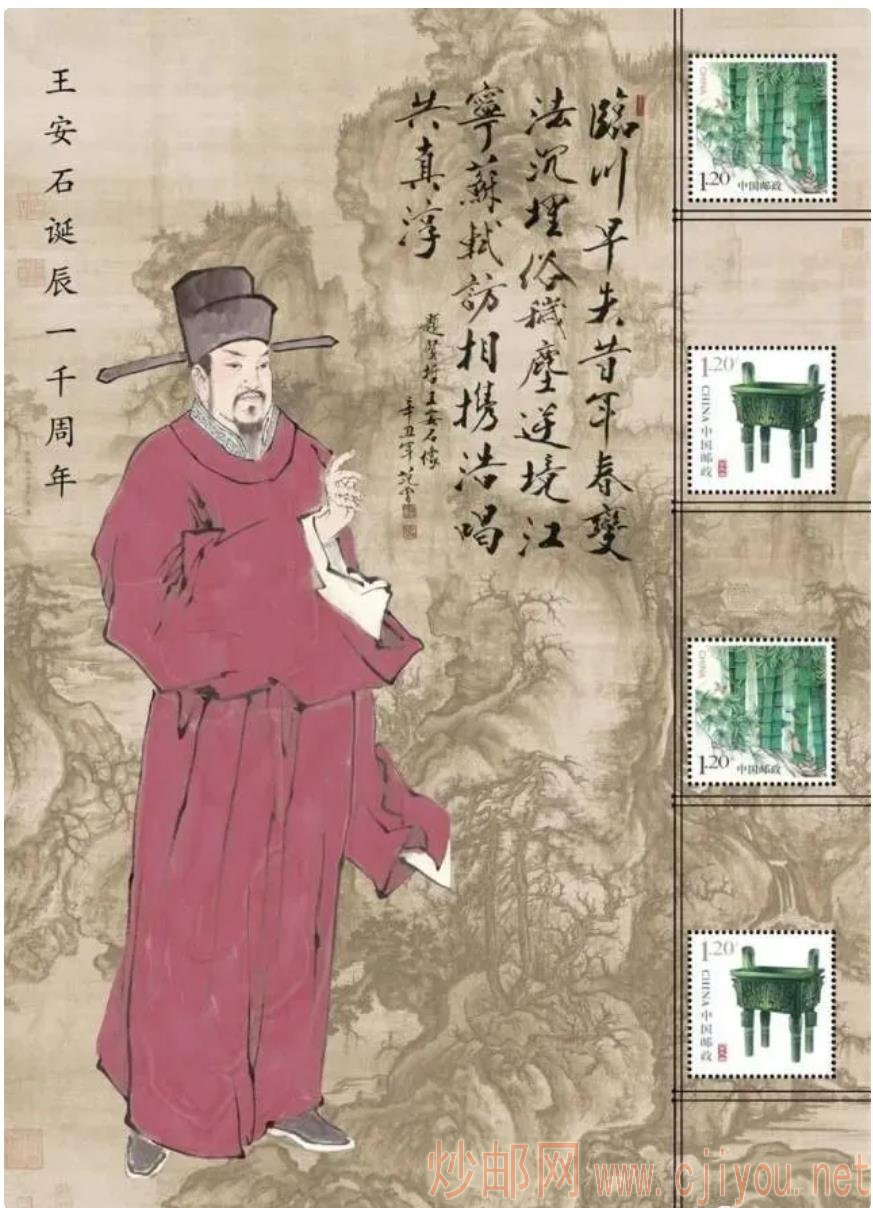 王安石诞辰一千周年
臨川早失昔年春變
法沉埋俗穢塵逆境江
寧蘇軾訪相攜浩唱
共真淳
題賢哲王安石像
辛丑年范曾
CHINA
1.20
中国邮政
1.20
CHINA 中国邮政
CHINA
1.20
中国邮政
1.20
CHINA 中国邮政
炒邮网 www.cjiyou.net